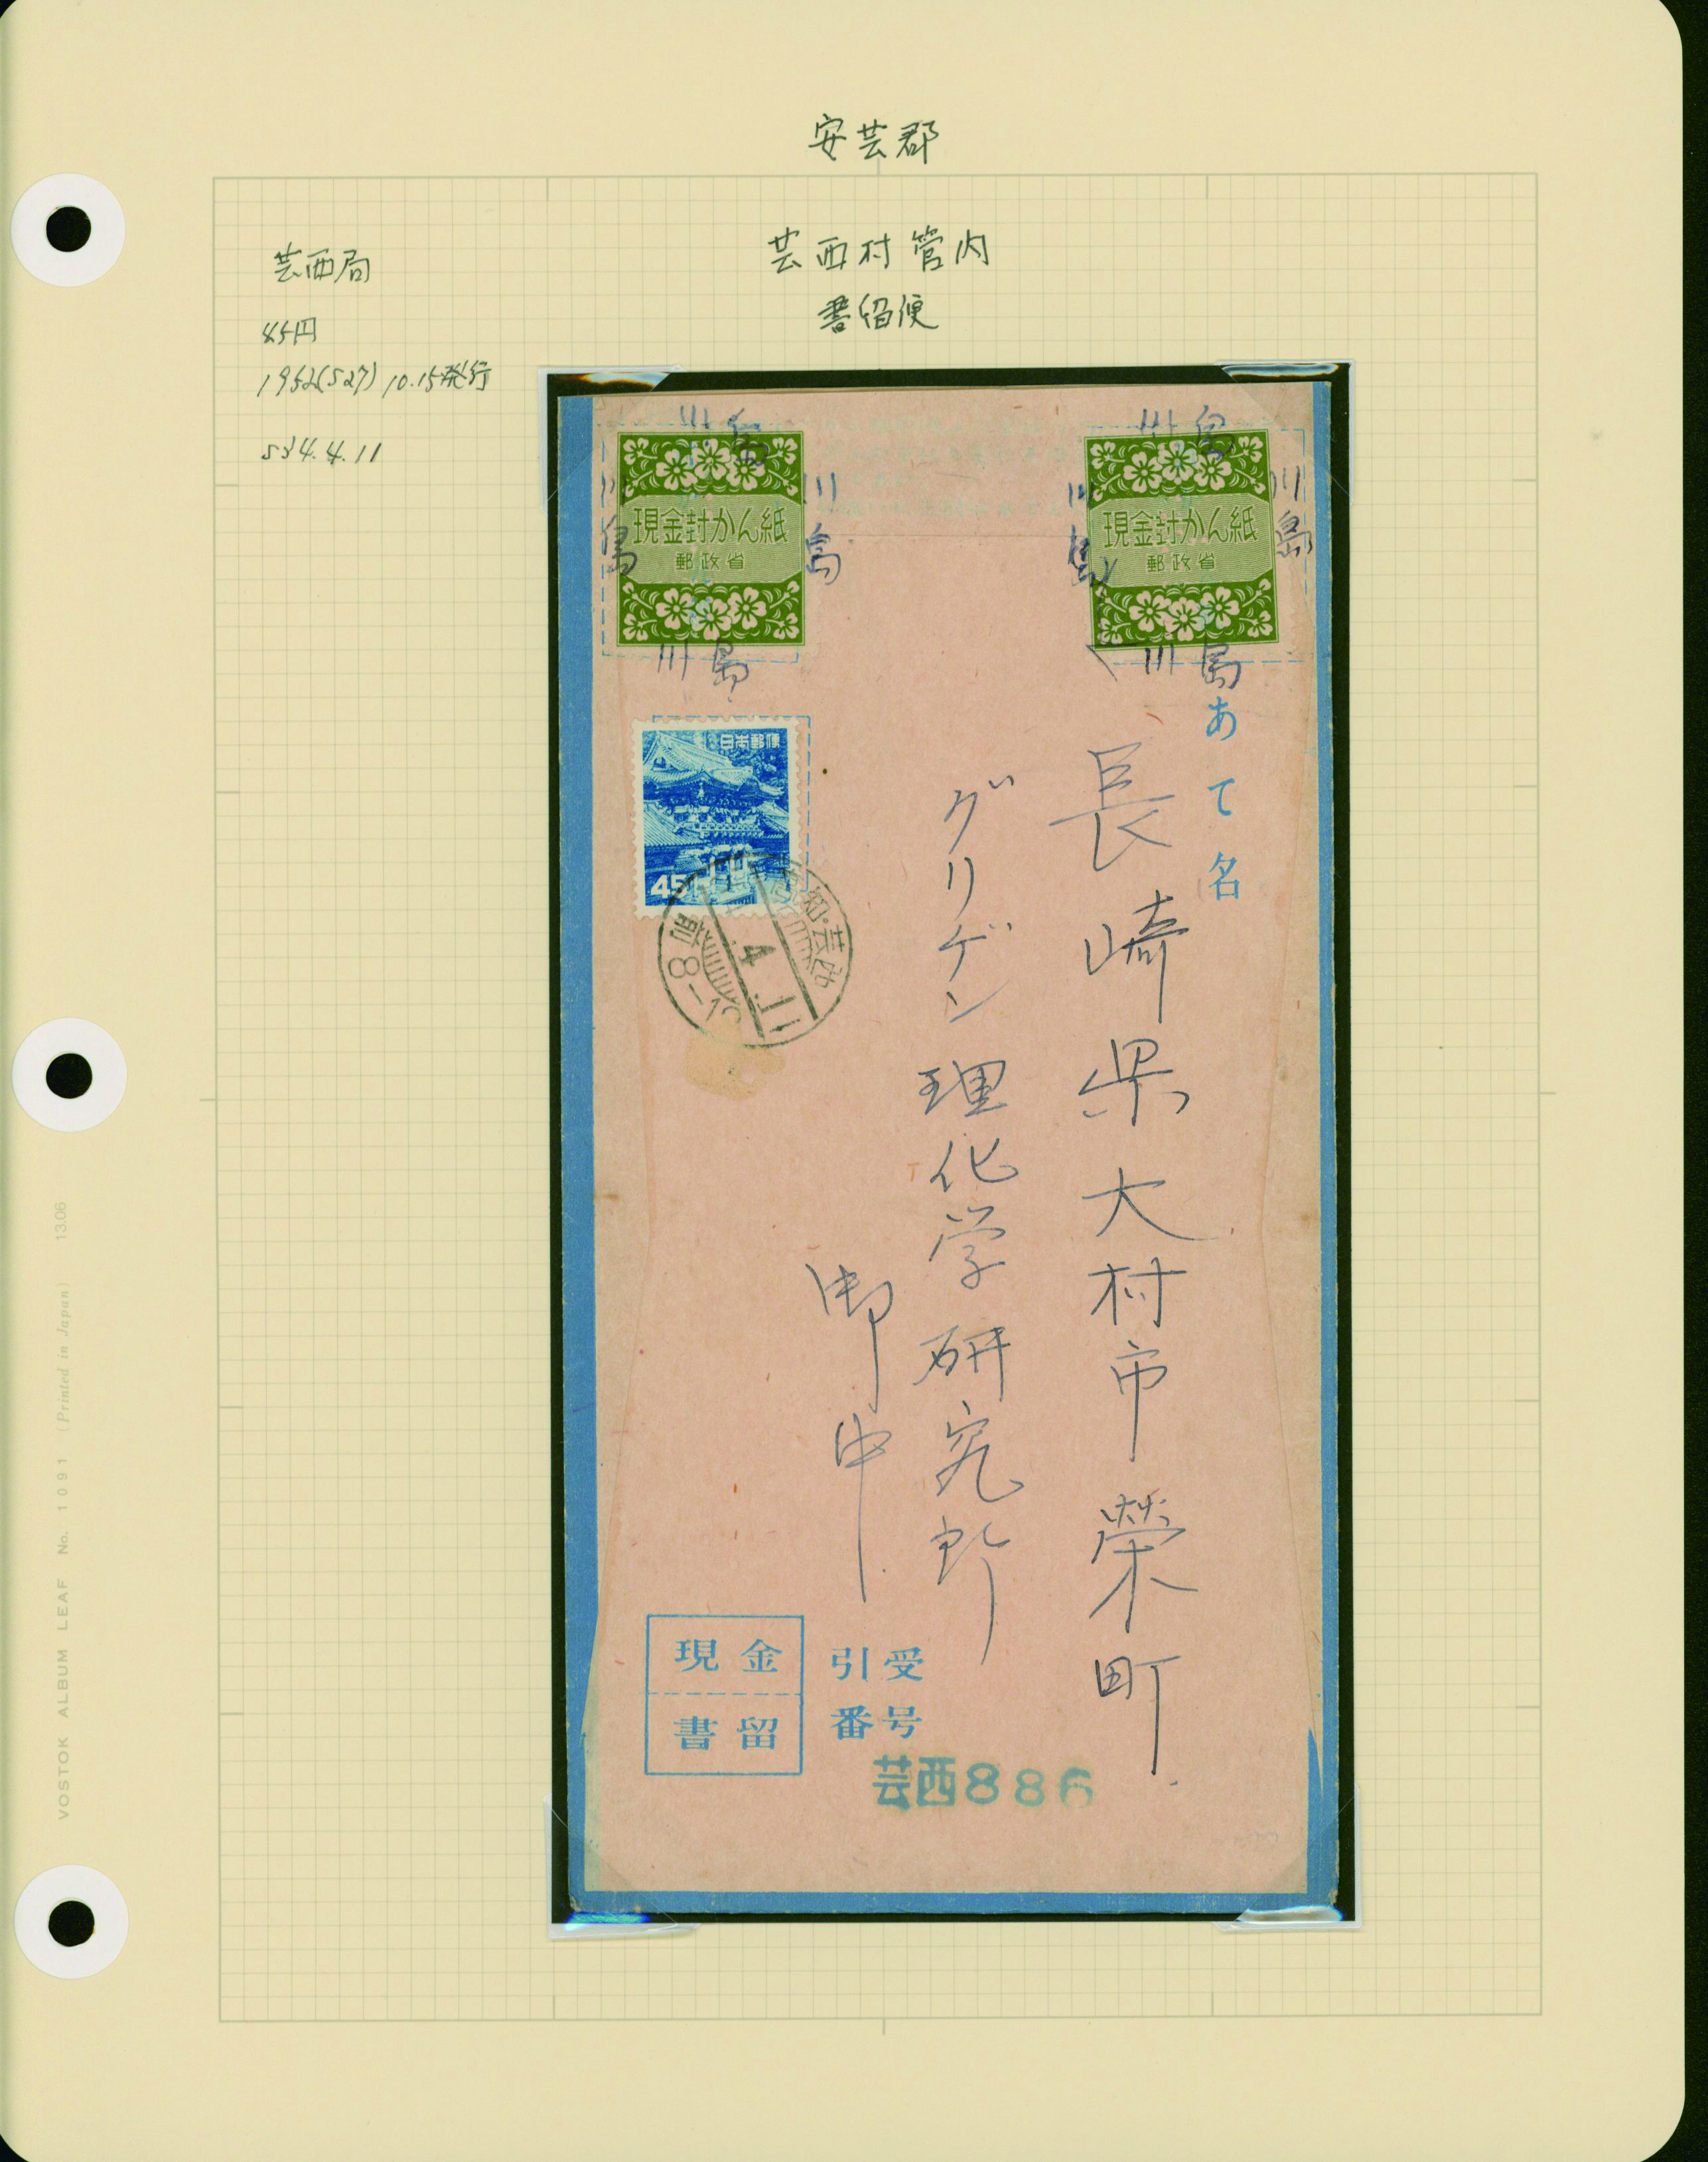 安芸郡
芸西村管内
書留便
芸西局
45円
1952(S27) 10.15発行
S34.4.11
川島
川島
川島
川島
現金封かん紙
郵政省
川島
川島
川島
川島
現金封かん紙
郵政省
日本郵便
45
知・芸西
4.11
前8-12
あて名
長崎県大村市榮町
グリゲン理化学研究所
御中
現金
書留
引受
番号
芸西886
VOSTOK ALBUM LEAF No. 1091 (Printed in Japan) 13.06